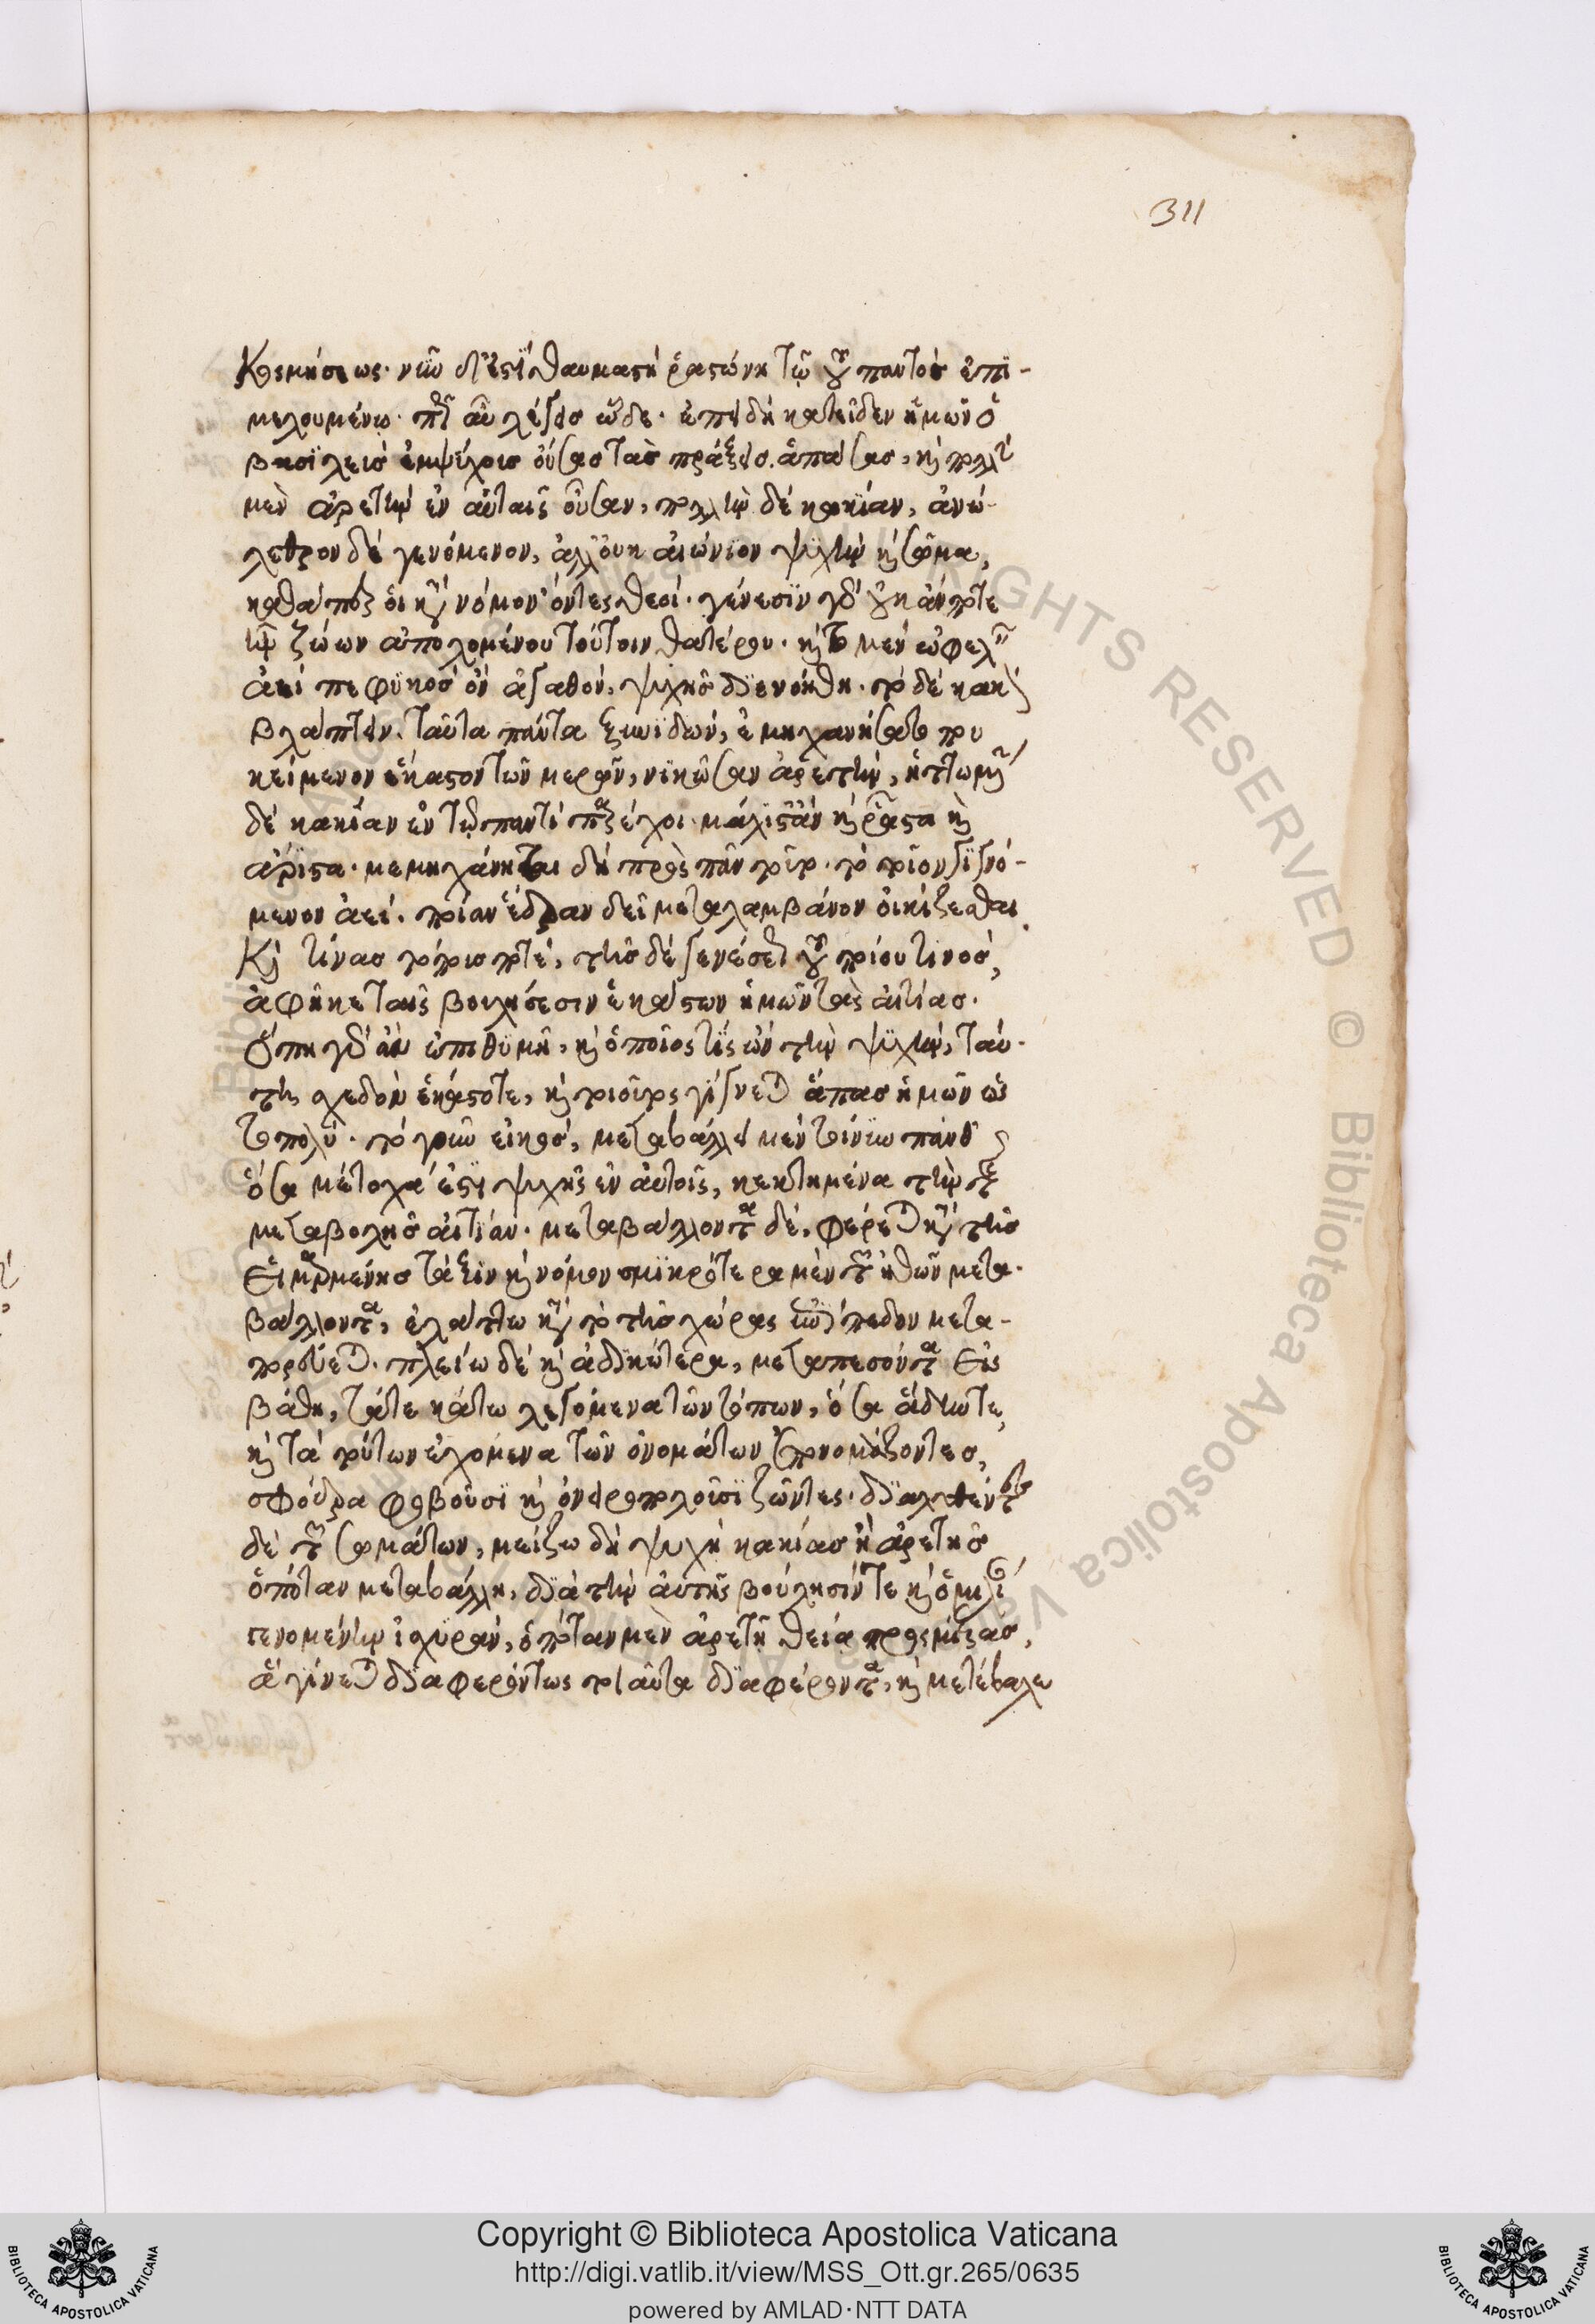 Κοσμήσεως· νῦν δ' ἔστι θαυμαστὴ ῥαστώνη τῷ τοῦ παντὸς ἐπι-
μελουμένω. πῶς αὖ λέγεις ὧδε. ἐπειδὴ κατεῖδεν ἡμῶν ὁ
βασιλεὺς ἐμψύχους οὔσας τὰς πράξεις ἁπάσας, καὶ πολλὴν
μὲν ἀρετὴν ἐν αὐταῖς οὖσαν, πολλὴν δὲ κακίαν, ἀνώ-
λεθρον δὲ γενόμενον, ἀλλ' οὐκ αἰώνιον ψυχὴν καὶ σῶμα,
καθάπερ οἱ κατὰ νόμον ὄντες θεοί. γένεσιν γὰρ οὐκ ἄν ποτε
ἦν ζώων ἀπολομένου τούτοιν θατέρου. καὶ τὸ μὲν ὠφελεῖν
ἀεὶ πεφυκὸς ὂν ἀγαθόν, ψυχῆς διενοήθη. τὸ δὲ κακὸν
βλάπτειν. ταῦτα πάντα ξυνιδών, ἐμηχανήσατο που
κείμενον ἕκαστον τῶν μερῶν, νικῶσαν ἀρετήν, ἡττωμένην
δὲ κακίαν ἐν τῷ παντὶ παρέχοι μάλιστ' ἂν καὶ ῥᾷστα καὶ
ἄριστα. μεμηχάνηται δὴ πρὸς πᾶν τοῦτο. τὸ ποῖον γιγνό-
μενον ἀεί. ποίαν ἕδραν δεῖ μεταλαμβάνον οἰκίζεσθαι
καὶ τίνας τόπους ποτέ, τῆς δὲ γενέσεως τοῦ ποίου τινός,
ἀφῆκε ταῖς βουλήσεσιν ἑκάστων ἡμῶν τὰς αἰτίας.
ὅπη γὰρ ἂν ἐπιθυμῆ, καὶ ὁποῖος τις ὢν τὴν ψυχήν, ταύ-
τη σχεδὸν ἑκάστοτε, καὶ τοιοῦτος γίγνεται ἅπας ἡμῶν ὡς
τὸ πολύ. τὸ γοῦν εἰκός, μεταβάλλει μὲν τοίνυν πάνθ'
ὅσα μέτοχά ἐστι ψυχῆς ἐν αὑτοῖς, κεκτημένα τὴν τῆς
μεταβολῆς αἰτίαν. μεταβάλλοντα δέ, φέρεται κατὰ τῆς
εἱμαρμένης τάξιν καὶ νόμον σμικρότερα μὲν τῶν ἠθῶν μετα-
βάλλοντα, ἐλάττω κατὰ τὸ τῆς χώρας ἐπίπεδον μετα-
πορεύεται. πλείω δὲ καὶ ἀδικώτερα, μεταπεσόντα εἰς
βάθη, τά τε κάτω λεγόμενα τῶν τόπων, ὅσα ᾅδην τε
καὶ τὰ τούτων ἐχόμενα τῶν ὀνομάτων ἐπονομάζοντες,
σφόδρα φοβοῦσι καὶ ὀνειροπολοῦσι ζῶντες. διαλυθέντες
δὲ τῶν σωμάτων, μείζω δὴ ψυχὴ κακίας ἢ ἀρετῆς
ὁπόταν μεταβάλλη, διὰ τὴν αὑτῆς βούλησίν τε καὶ ὁμιλίαν
γενομένην ἰσχυράν, ὁπόταν μὲν ἀρετῇ θείᾳ προσμίξασ,
ἃ γίνεται διαφερόντως τοιαῦτα διαφέροντα, καὶ μετέβαλεν